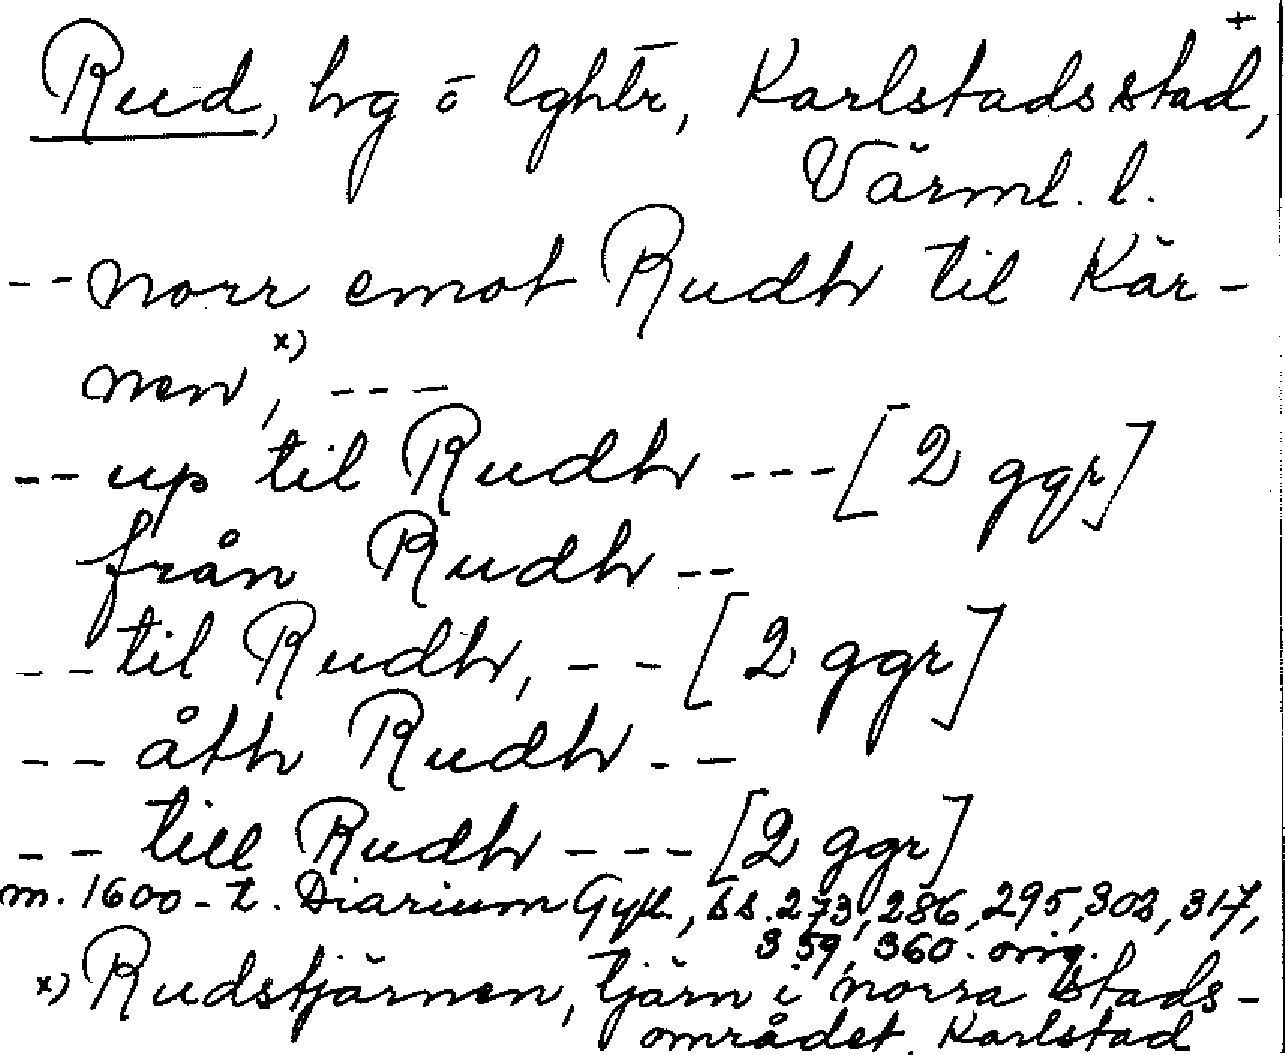 +
Rud, hg o lghtr, Karlstads stad,
Värml. l.
-- norr emot Rudh til Kär-
nen x), ---
-- up til Rudh --- [2 ggr]
från Rudh --
-- til Rudh, -- [2 ggr]
-- åth Rudh --
-- till Rudh --- [2 ggr]
m. 1600-t. Diarium Gyll., ss. 273, 286, 295, 303, 317,
359, 360. orig.
x) Rudstjärnen, tjärn i norra stads-
området, Karlstad